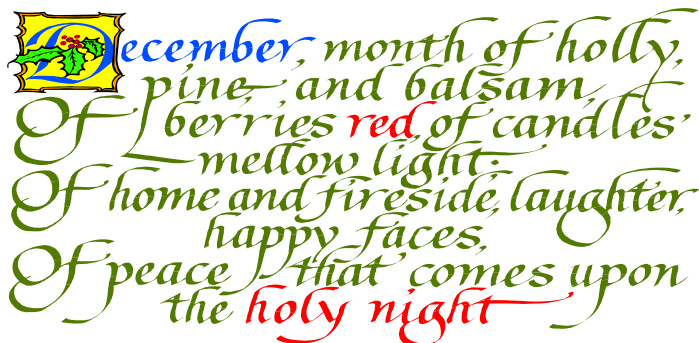 December, month of holly,
pine, and balsam,
Of berries red, of candles'
mellow light;
Of home and fireside, laughter,
happy faces,
Of peace that comes upon
the holy night